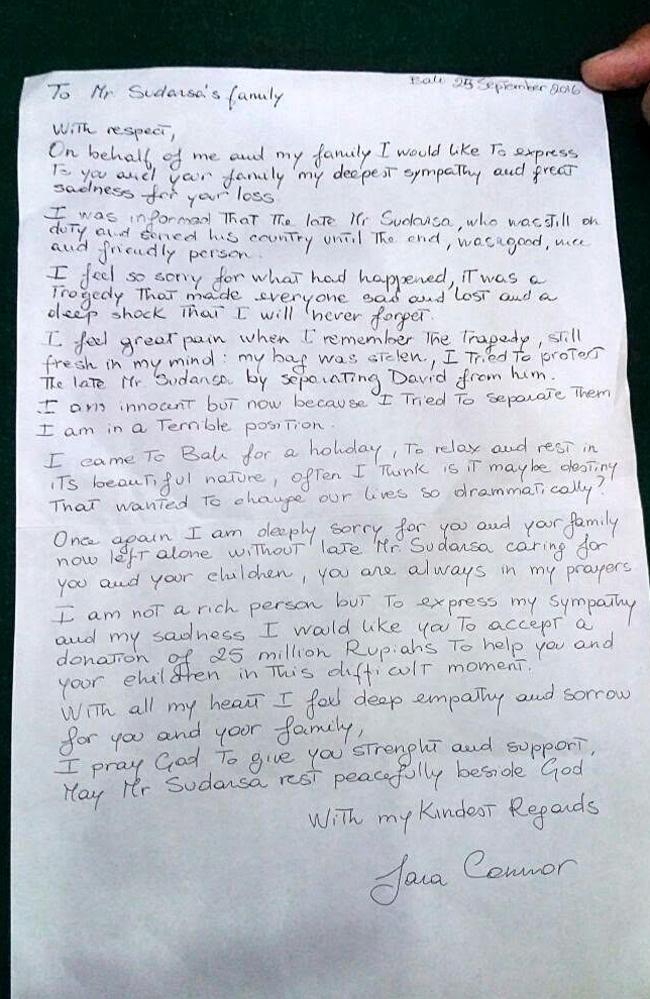 Bali 25 September 2016
To Mr Sudarsa's family
With respect,
On behalf of me and my family I would like To express
To you and your family my deepest sympathy and great
sadness for your loss
I was informed That The late Mr Sudarsa, who was still on
duty and served his country until The end, was a good, nice
and friendly person.
I feel so sorry for what had happened, iT was a
Tragedy That made everyone sad and lost and a
deep shock That I will never forget.
I feel great pain when I remember The Tragedy, still
fresh in my mind: my bag was stolen, I Tried To protect
The late Mr Sudarsa by separating David from him.
I am innocent but now because I Tried To separate Them
I am in a Terrible position.
I came To Bali for a holiday, To relax and rest in
iTs beautiful nature, often I Think is iT maybe destiny
That wanted To change our lives so drammatically?
Once again I am deeply sorry for you and your family
now left alone without late Mr Sudarsa caring for
you and your children, you are always in my prayers
I am not a rich person but To express my sympathy
and my sadness I would like you To accept a
donation of 25 million Rupiahs To help you and
your children in This difficult moment.
With all my heart I feel deep empathy and sorrow
for you and your family,
I pray God To give you strenght and support,
May Mr Sudarsa rest peacefully beside God
With my Kindest Regards
Sara Connor